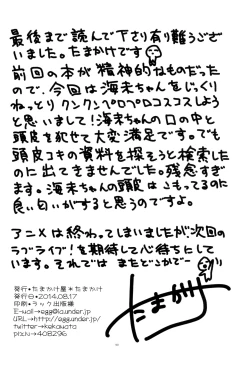 最後まで読んで下さり有り難うござ
いました。たまかけです
前回の本が精神的なものだった
ので、今回は海未ちゃんをじっくり
ねっとりクンクンペロペロコスコスしよう
と思いまして!海未ちゃんの口の中と
頭皮を犯せて大変満足です。でも
頭皮コキの資料を探そうと検索した
のに出てきませんでした。残念すぎ
ます。海未ちゃんの頭皮はこもってるのに
良い匂いがすると思うのですよ。
アニメは終わってしまいましたが次回の
ラブライブ!を期待して心待ちにして
います。それでは またどこかで〜
発行•たまかけ屋*たまかけ
発行日•2014.08.17
印刷•ラック出版様
E-mail→egg@la.under.jp
URL→http://egg.under.jp/
twitter→kekowata
pixiv→408296
たまかけ